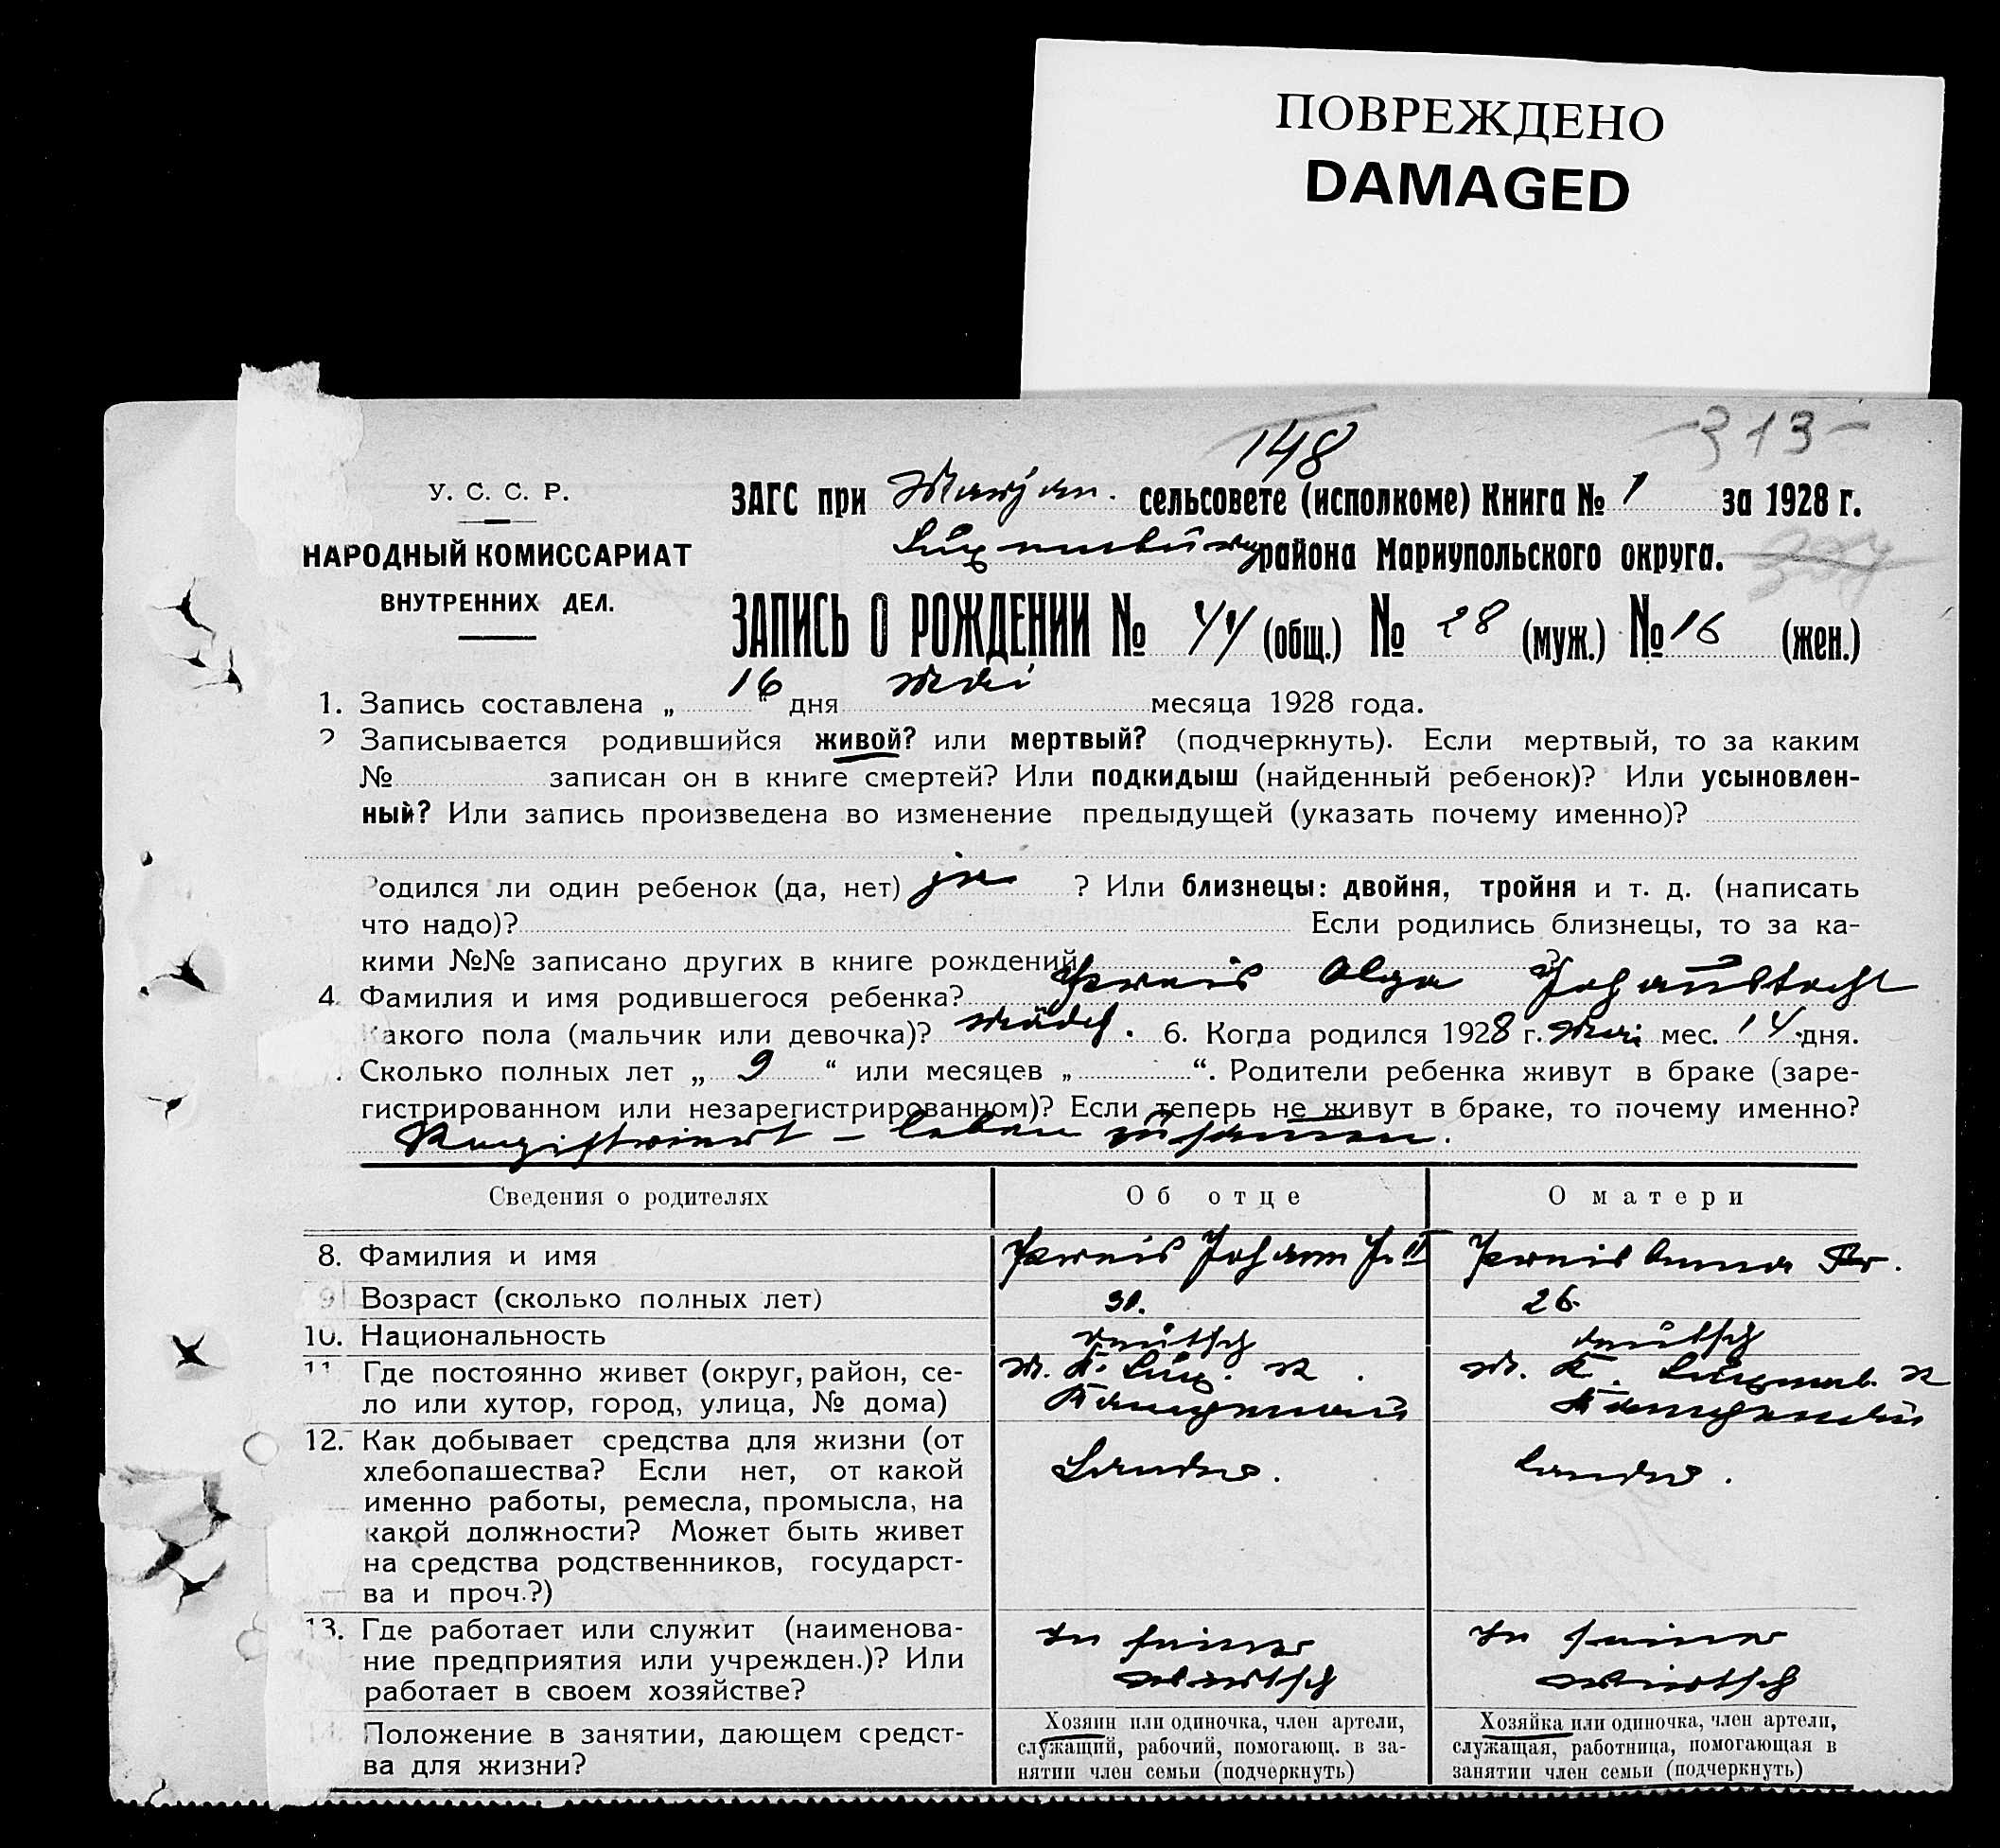 ПОВРЕЖДЕНО
DAMAGED
148
-313-
У. С. С. Р.
НАРОДНЫЙ КОМИССАРИАТ
ВНУТРЕННИХ ДЕЛ.
ЗАГС при Marjan. сельсовете (исполкоме) Книга № 1 за 1928 г.
района Мариупольского округа.
ЗАПИСЬ О РОЖДЕНИИ № 44 (общ.) № 28 (муж.) № 16 (жен.)
1. Запись составлена „ 16 “ дня Mai месяца 1928 года.
2 Записывается родившийся живой? или мертвый? (подчеркнуть). Если мертвый, то за каким
№ записан он в книге смертей? Или подкидыш (найденный ребенок)? Или усыновлен-
ный? Или запись произведена во изменение предыдущей (указать почему именно)?
Родился ли один ребенок (да, нет) ja ? Или близнецы: двойня, тройня и т. д. (написать
что надо)? Если родились близнецы, то за ка-
кими №№ записано других в книге рождений ?
4. Фамилия и имя родившегося ребенка? Olga
какого пола (мальчик или девочка)? Mädch. 6. Когда родился 1928 г. Mai мес. 14 дня.
. Сколько полных лет „ 9 “ или месяцев „ “. Родители ребенка живут в браке (заре-
гистрированном или незарегистрированном)? Если теперь не живут в браке, то почему именно?
Registriert – leben zusamen.
Сведения о родителях
Об отце
О матери
8. Фамилия и имя
Johann
Anna
9 Возраст (сколько полных лет)
26.
10. Национальность
deutsch
deutsch
11 Где постоянно живет (округ, район, се-
ло или хутор, город, улица, № дома)
M. K. Lux. R.
M. K. R
12. Как добывает средства для жизни (от
хлебопашества? Если нет, от какой
именно работы, ремесла, промысла, на
какой должности? Может быть живет
на средства родственников, государст-
ва и проч.?)
Landw.
Landw.
13. Где работает или служит (наименова-
ние предприятия или учрежден.)? Или
работает в своем хозяйстве?
In seiner
Wirtsch
In seiner
Wirtsch
14. Положение в занятии, дающем средст-
ва для жизни?
Хозяин или одиночка, член артели,
служащий, рабочий, помогающ. в за-
нятии член семьи (подчеркнуть)
Хозяйка или одиночка, член артели,
служащая, работница, помогающая в
занятии член семьи (подчеркнуть)